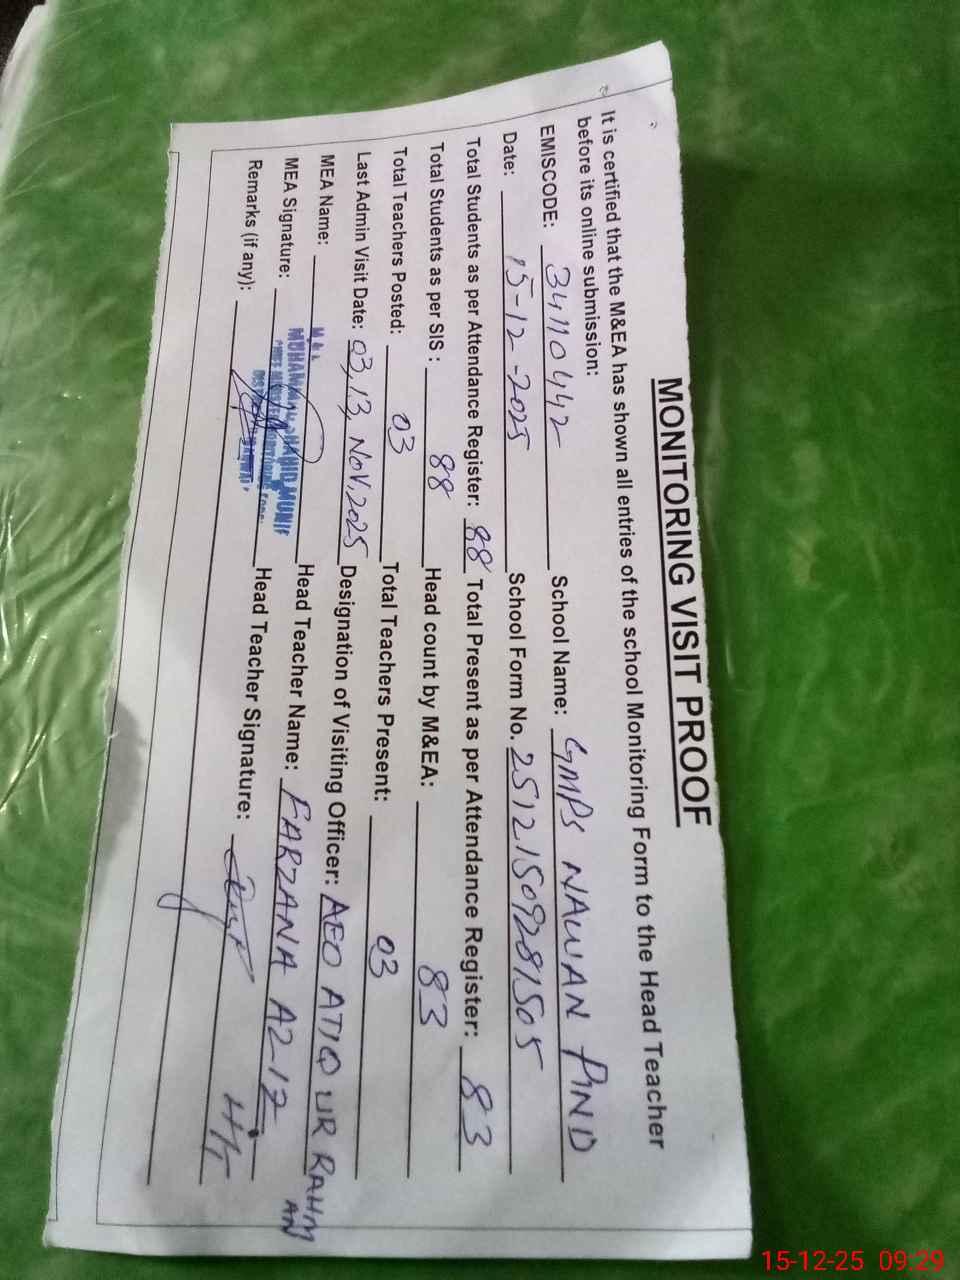 MONITORING VISIT PROOF
It is certified that the M&EA has shown all entries of the school Monitoring Form to the Head Teacher
before its online submission:
EMISCODE: 34110442 School Name: GMPS NAWAN PIND
Date: 15-12-2025 School Form No. 25121509281505
Total Students as per Attendance Register: 88 Total Present as per Attendance Register: 83
Total Students as per SIS : 88 Head count by M&EA: 83
Total Teachers Posted: 03 Total Teachers Present: 03
Last Admin Visit Date: 03, 13, NOV, 2025 Designation of Visiting Officer: AEO ATIQ UR RAHMAN
MEA Name: MUHAMMAD MUNIR Head Teacher Name: FARZANA AZ-17
MEA Signature: Head Teacher Signature:
Remarks (if any):
15-12-25 09:29